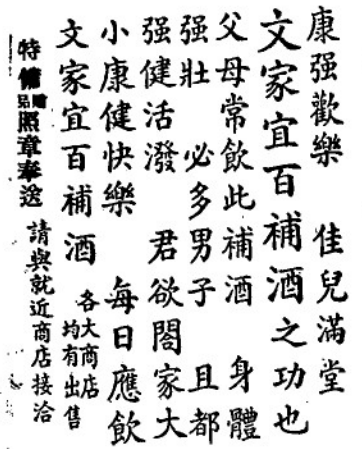 康强歡樂 佳兒滿堂
文家宜百補酒之功也
父母常飲此補酒 身體
强壯 必多男子 且都
强健活潑 君欲閤家大
小康健快樂 每日應飲
文家宜百補酒
各大商店
均有出售
特備贈品照章奉送 請與就近商店接洽